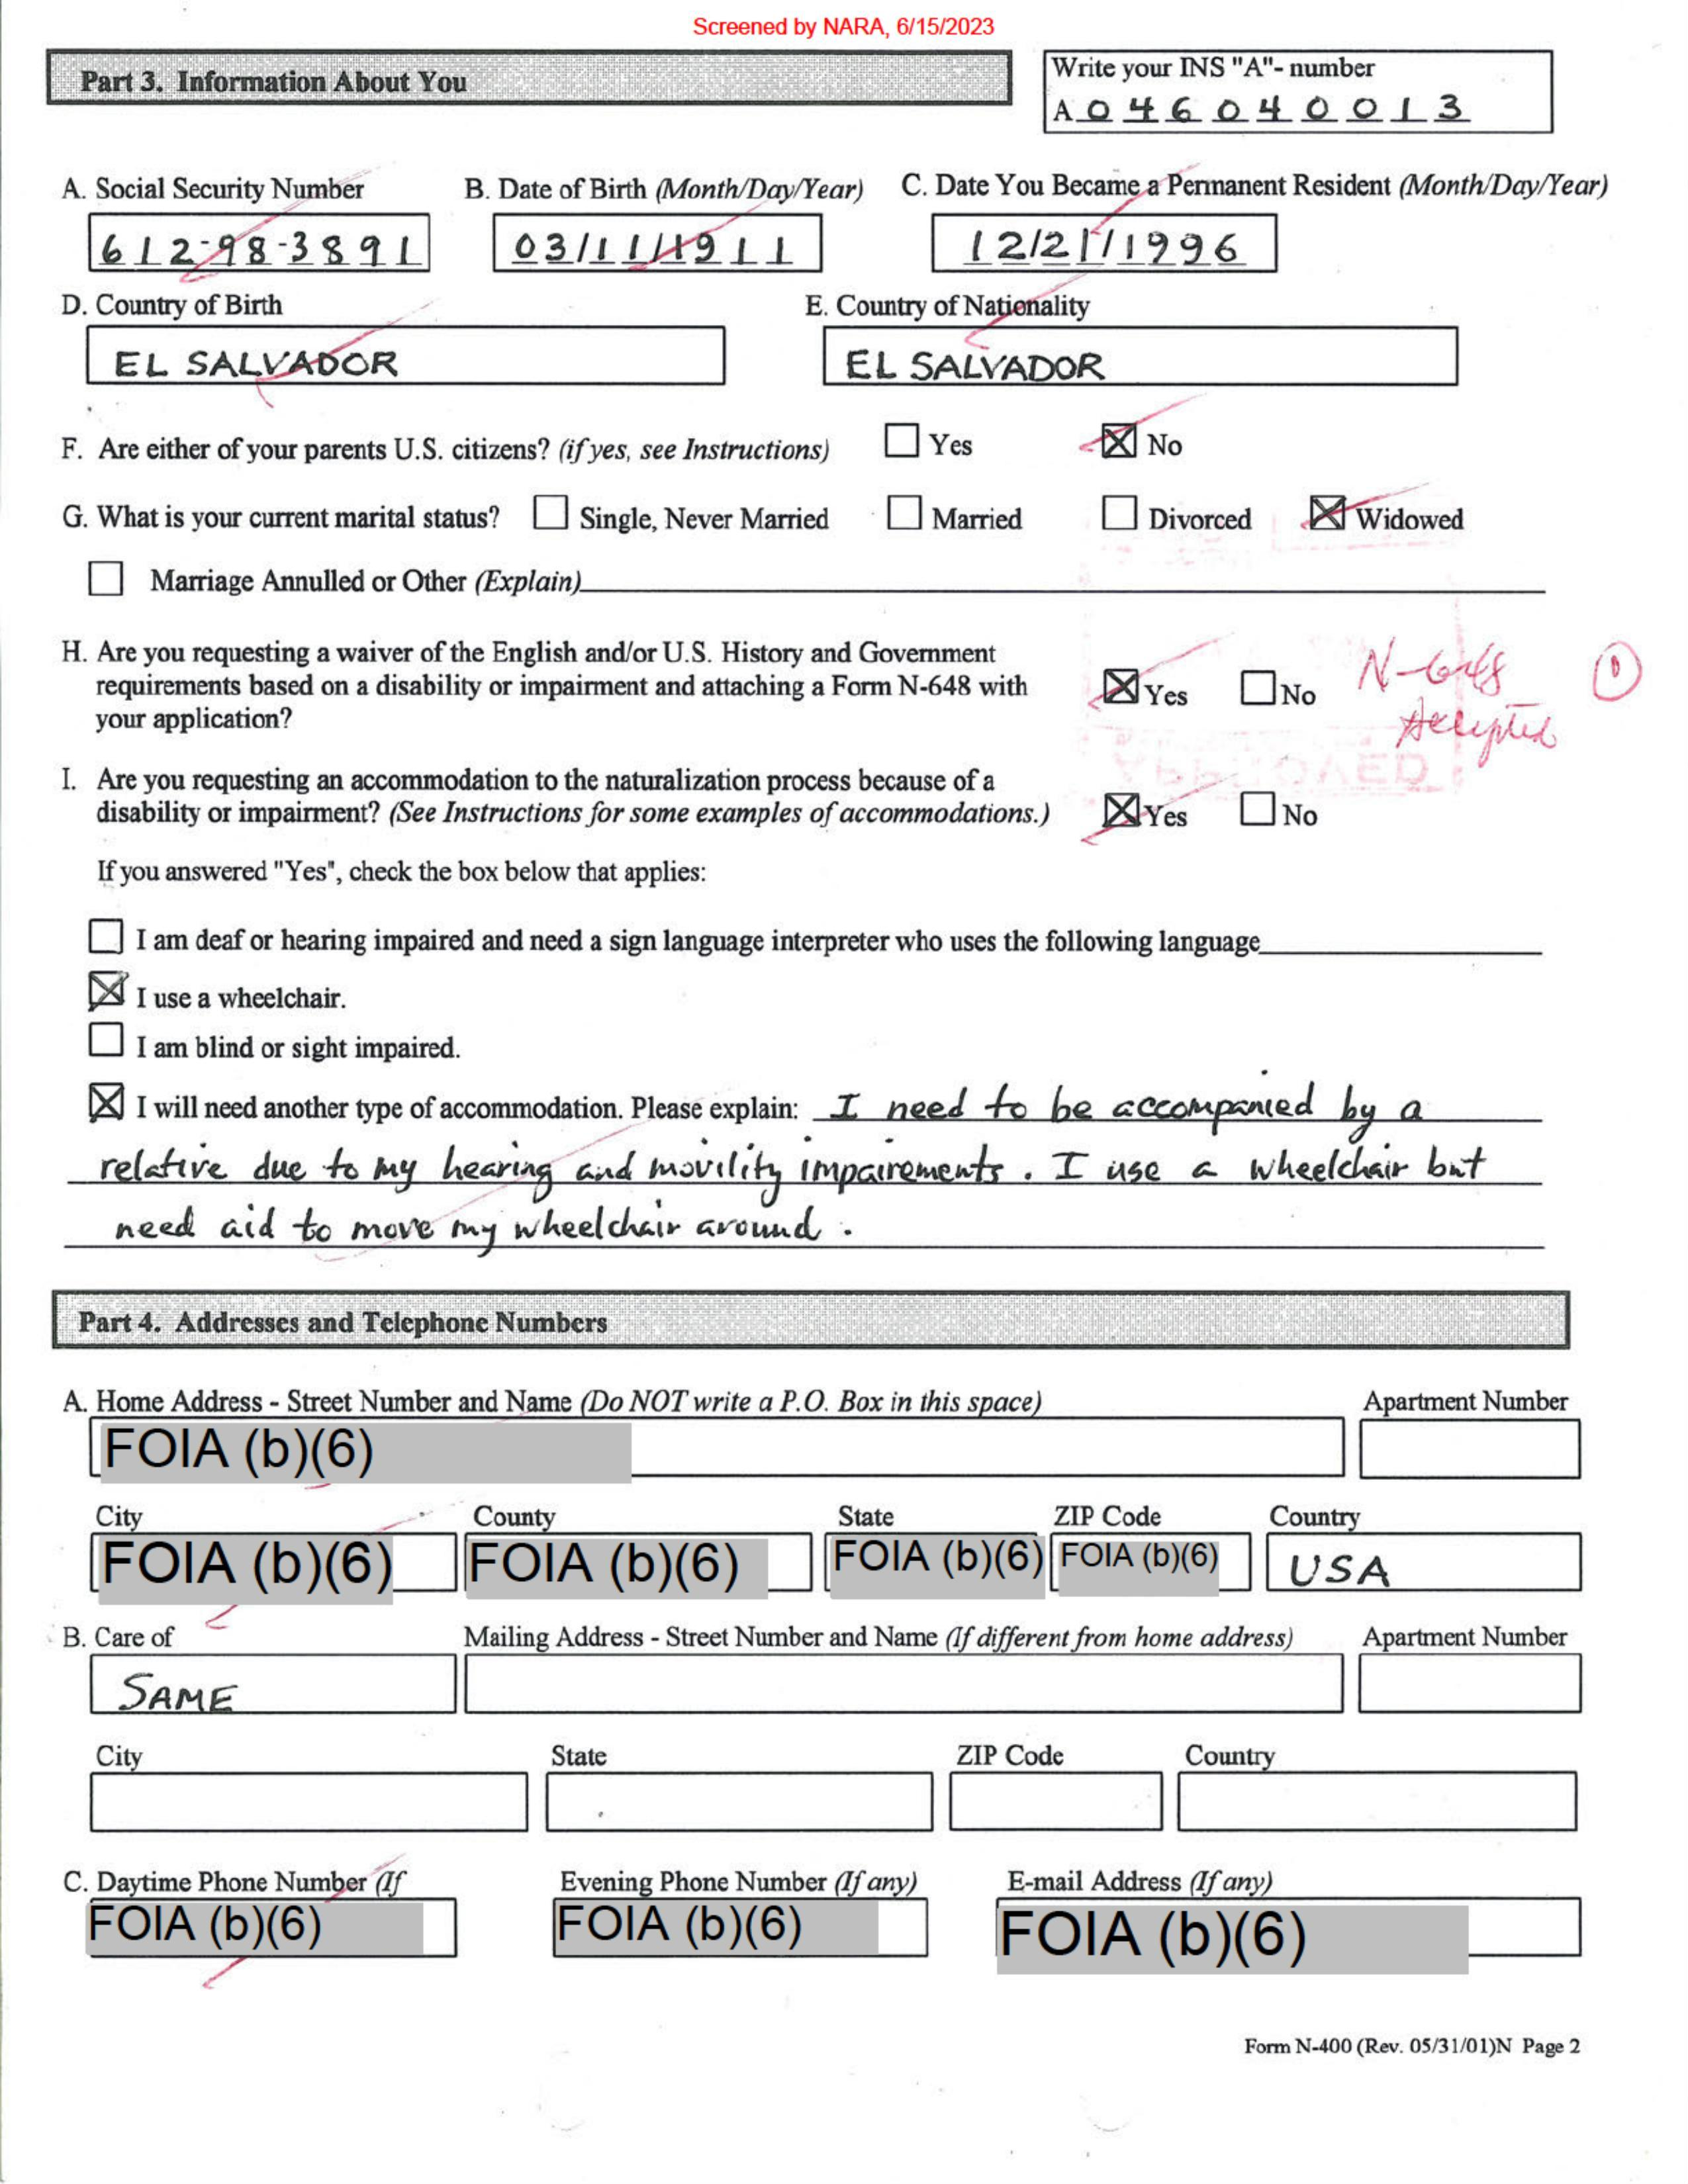 Screened by NARA, 6/15/2023
Part 3. Information About You
Write your INS "A"- number
A 0 4 6 0 4 0 0 1 3
A. Social Security Number B. Date of Birth (Month/Day/Year) C. Date You Became a Permanent Resident (Month/Day/Year)
612-98-3891 03/11/1911 12/21/1996
D. Country of Birth E. Country of Nationality
EL SALVADOR EL SALVADOR
F. Are either of your parents U.S. citizens? (if yes, see Instructions) Yes No
G. What is your current marital status? Single, Never Married Married Divorced Widowed
Marriage Annulled or Other (Explain)
H. Are you requesting a waiver of the English and/or U.S. History and Government
requirements based on a disability or impairment and attaching a Form N-648 with
your application?
Yes No N-648 1
Accepted
APPROVED
I. Are you requesting an accommodation to the naturalization process because of a
disability or impairment? (See Instructions for some examples of accommodations.) Yes No
If you answered "Yes", check the box below that applies:
I am deaf or hearing impaired and need a sign language interpreter who uses the following language
I use a wheelchair.
I am blind or sight impaired.
I will need another type of accommodation. Please explain: I need to be accompanied by a
relative due to my hearing and movility impairements. I use a wheelchair but
need aid to move my wheelchair around.
Part 4. Addresses and Telephone Numbers
A. Home Address - Street Number and Name (Do NOT write a P.O. Box in this space) Apartment Number
FOIA (b)(6)
City County State ZIP Code Country
FOIA (b)(6) FOIA (b)(6) FOIA (b)(6) FOIA (b)(6) USA
B. Care of Mailing Address - Street Number and Name (If different from home address) Apartment Number
SAME
City State ZIP Code Country
C. Daytime Phone Number (If Evening Phone Number (If any) E-mail Address (If any)
FOIA (b)(6) FOIA (b)(6) FOIA (b)(6)
Form N-400 (Rev. 05/31/01)N Page 2